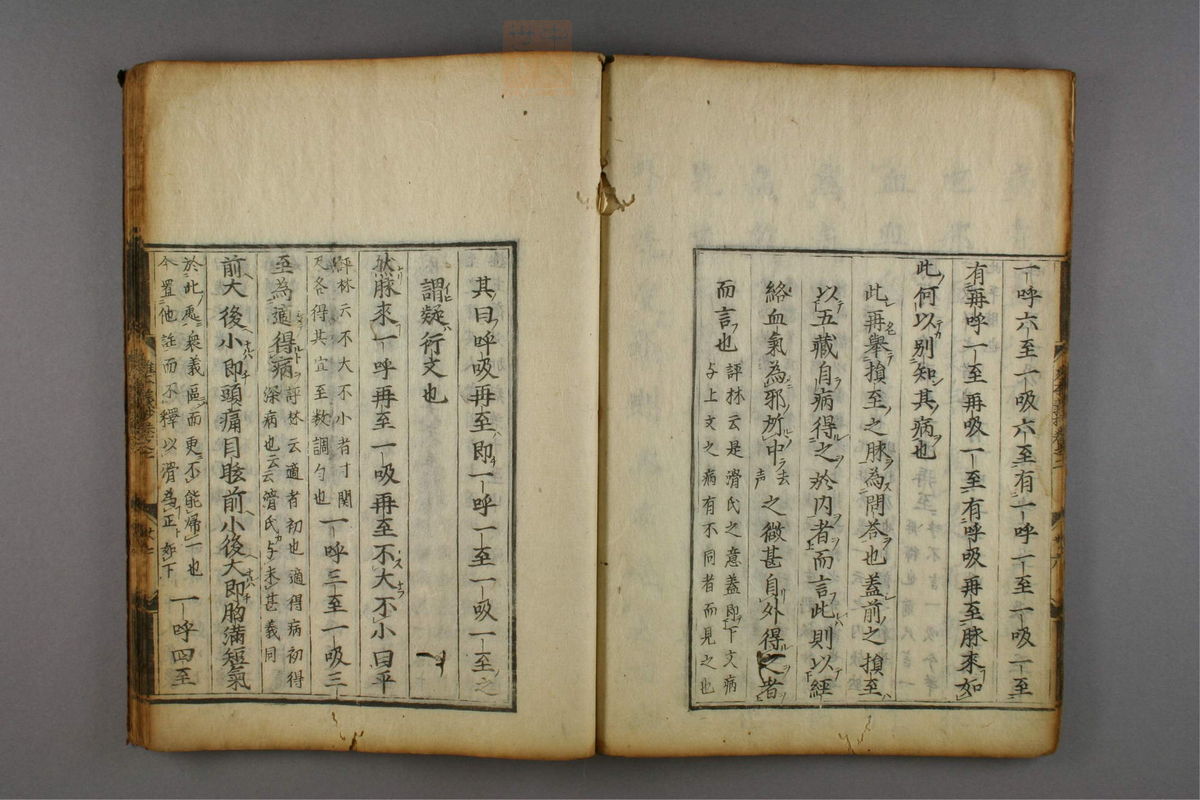 一呼六至一吸六至有一呼一至一吸一至
有再呼一至再吸一至有呼吸再至脉來如
此何以別知其病也
此再舉損至之脉為問答也蓋前之損至
以五藏自病得之於内者而言此則以經
絡血氣為邪所中去声之微甚自外得之者
而言也評林云是滑氏之意蓋即下文病
与上文之病有不同者而見之也
其曰呼吸再至即一呼一至一吸一至之
謂疑衍文也
然脉來一呼再至一吸再至不大不小曰平
評林云不大不小者寸関
尺各得其宜至数調勻也一呼三至一吸三
至為適得病評林云適者初也適得病初得
深病也云云滑氏与未甚義同
前大後小即頭痛目眩前小後大即胸滿短氣
於此處衆義區而更不能帰一也
今置他註而不釋以滑為正下一呼四至